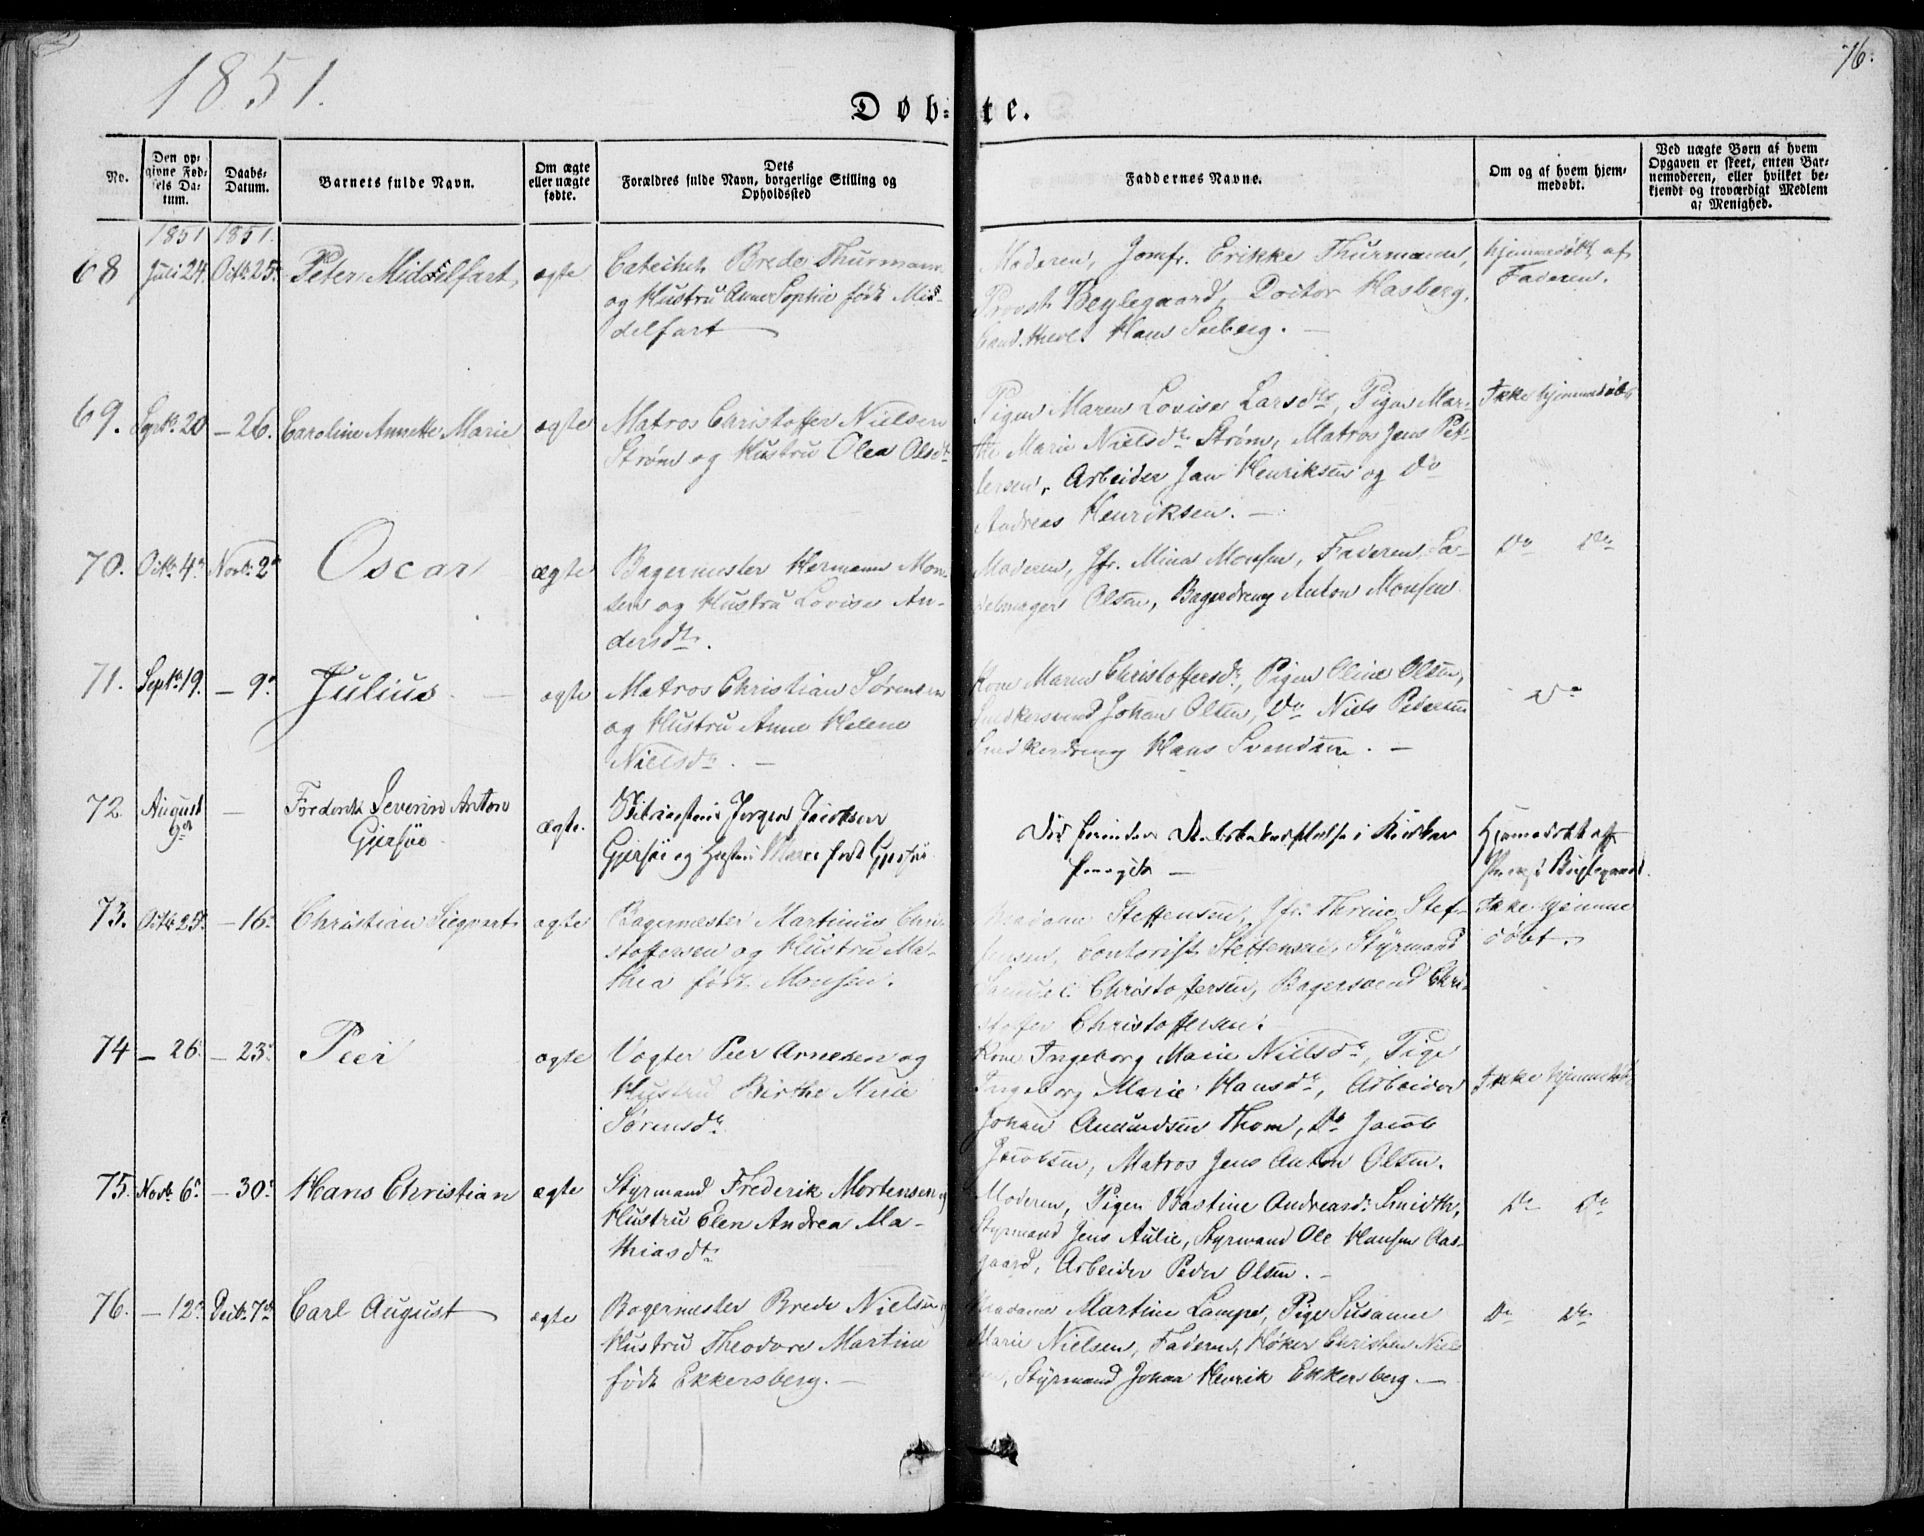 1851.
76.
Døb-te.
No.
Den opgivne Fødsels Datum.
Daabs-Datum.
Barnets fulde Navn.
Om ægte eller uægte fødte.
Dets Forældres fulde Navn, borgerlige Stilling og Opholdssted
Faddernes Navne.
Om og af hvem hjemmedøbt.
Ved uægte Børn af hvem Opgaven er skeet, enten Barnemoderen, eller hvilket bekjendt og troværdigt Medlem af Menighed.
1851 1851.
68 Juli 24. Octb. 25. Peter Middelfart, ægte
Catechet Brede Thurmann
og Hustru Anne Sophie født Mid-
delfart
Moderen, Jomfr. Erikke Thurmann,
Provst Beglegaard, Doctor Hasberg,
Cand. theol. Hans Seeberg. —
Hjemmedøbt af
Faderen.
69. Septb. 20 — 26. Caroline Annette Marie ægte
Matros Christoffer Nielsen
Strøm og Hustru Olea Olsdt.
Pigen Maren Lovise Larsdtr, Pigen Mar-
the Marie Nielsdtr Strøm, Matros Jens Pet-
tersen, Arbeider Jan Henriksen og Do
Andreas Henriksen. —
Ikke hjemmedøbt
70. Octb. 4de Novb. 2de Oscar ægte
Bagermester Hermann Mon-
sen og Hustru Lovise An-
dersdtr.
Moderen, Jfr. Mina Monsen, Faderen, Sa-
delmager Olsen, Bagerdreng Anton Monsen.
Do Do
71. Septb. 19. — 9de Julius — ægte
Matros Christian Sørensen
og Hustru Anne Helene
Nielsdtr. —
Kone Maren Christoffersdtr, Pigen Oline Olsen,
Snedkersvend Johan Olsen, Do Niels Pedersen
Snedkerdreng Hans Svendsen. —
Do
72. August 9de — Frederik Severin Anton
Gjersøe ægte.
Jørgen Jacobsen
Gjersøe og Hustru Maren født Gjersøe
i Kirken
—
Hjemmedøbt af
Provst Beglegaard.
73. Octb. 25. — 16. Christian Siegvart ægte
Bagermester Martinus Chri-
stoffersen og Hustru Ma-
thea født Monsen.
Madam Steffensen, Jfr. Thrine Stef-
fensen, Contorist Steffensen, Styrmand
Samuel Christoffersen, Bagersvend Chri-
stoffer Christoffersen.
Ikke hjemme
døbt.
74 — 26. — 23. Peer ægte
Vægter Peer Arnesen og
Hustru Birthe Marie
Sørensdtr.
Kone Ingeborg Marie Nielsdtr, Pige
Ingeborg Marie Hansdtr, Arbeider
Johan Amundsen Thom, Do Jacob
Jacobsen, Matros Jens Anton Olsen.
Ikke hjemmedøbt
75. Novb. 6. — 30. Hans Christian ægte
Styrmand Frederik Mortensen og
Hustru Elen Andrea Ma-
thiasdtr
Moderen, Pigen Bastine Andreasdtr Smidth,
Styrmand Jens Aulie, Styrmand Ole Hansen Aas-
gaard, Arbeider Peder Olsen. —
Do Do
76. — 12. Decb. 7de Carl August ægte
Bagermester Brede Nielsen og
Hustru Theodore Martine
født Ekkersberg. —
Madame Martine Lampe, Pige Susanne
Marie Nielsen, Faderen, Høker Christen Niel-
sen, Styrmand Johan Henrik Ekkersberg. —
Do Do